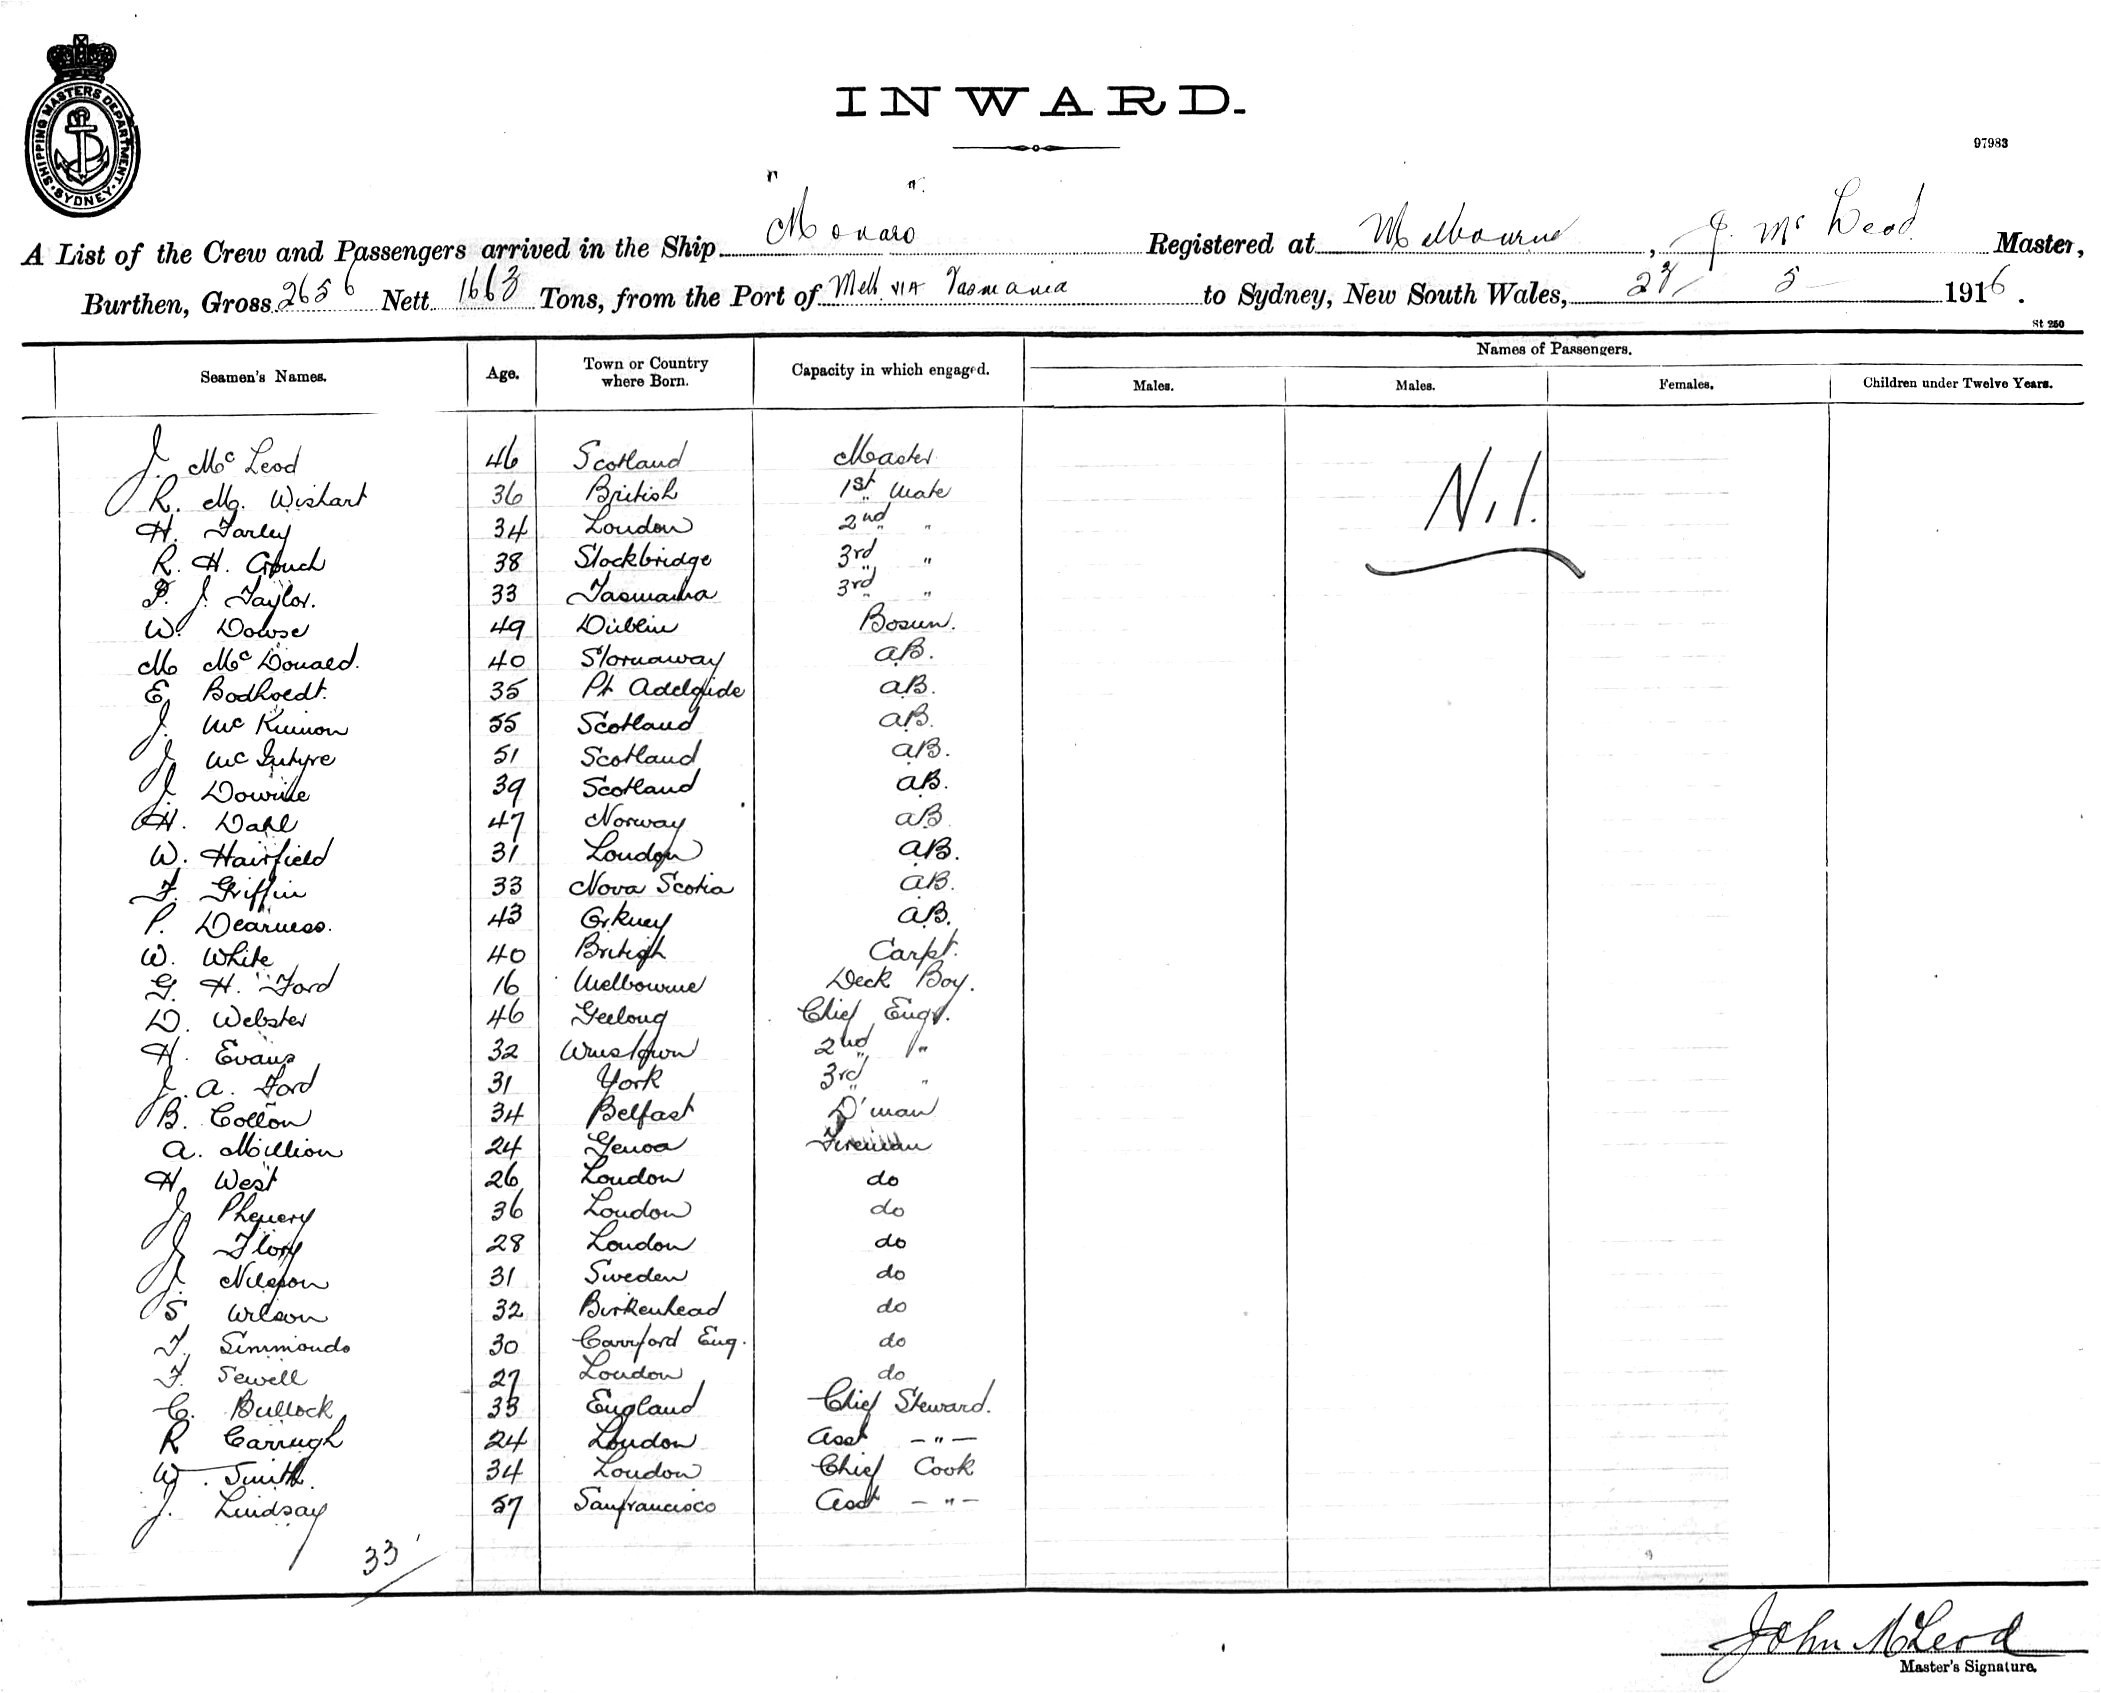 SHIPPING MASTERS DEPARTMENT. SYDNEY
INWARD.
97983
A List of the Crew and Passengers arrived in the Ship "Monaro" Registered at Melbourne, J. Mc Leod Master,
Burthen, Gross 2656 Nett 1663 Tons, from the Port of Melb. VIA Tasmania to Sydney, New South Wales, 5 1916.
St 250
Seamen's Names. Age. Town or Country where Born. Capacity in which engaged. Names of Passengers.
Males. Males. Females. Children under Twelve Years.
J. Mc Leod 46 Scotland Master
Nil.
R. M. Wishart 36 British 1st Mate
H. Farley 34 London 2nd "
R. H. Crouch 38 Stockbridge 3rd "
P. J. Taylor. 33 Tasmania 3rd "
W. Dowse 49 Dublin Bosun.
M McDonald. 40 Stornaway A.B.
E Bodhoedt. 35 Pt Adelaide A.B.
J. McKinnon 55 Scotland A.B.
J. McIntyre 51 Scotland A.B.
J. Downie 39 Scotland A.B.
H. Dahl 47 Norway A.B
W. Hairfield 31 London A.B.
F. Griffin 33 Nova Scotia A.B.
P. Dearness. 43 Orkney A.B.
W. White 40 British Carpt.
G. H. Ford 16 Melbourne Deck Boy.
D. Webster 46 Geelong Chief Engr.
H. Evans 32 Wmstown 2nd "
J. A. Ford 31 York 3rd "
B. Cotton 34 Belfast D'man
A. Million 24 Genoa Fireman
H. West 26 London do
J. Phenery 36 London do
J. Flory 28 London do
J. Nilsson 31 Sweden do
S Wilson 32 Birkenhead do
F. Simmonds 30 Eng. do
F. Sewell 27 London do
C. Bullock 33 England Chief Steward.
R Carrugh 24 London Asst — " —
W. Smith. 34 London Chief Cook
J. Lindsay 57 Sanfrancisco Asst — " —
33
John McLeod
Master's Signature.